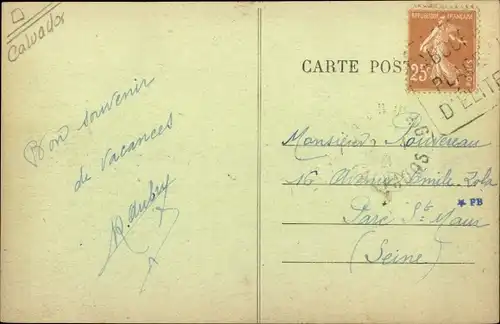 Calvados
Bon souvenir
de vacances
Aubry
CARTE POST
RÉPUBLIQUE FRANÇAISE
25
PLAGE
D'ELITE
Monsieur Rouvereau
16, Avenue Emile Zola
* FB
Parc St Maur
(Seine)